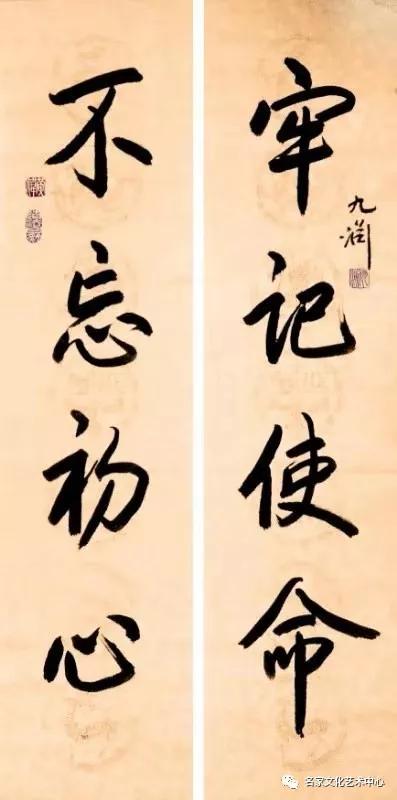 不忘初心
牢记使命
九润
名家文化艺术中心